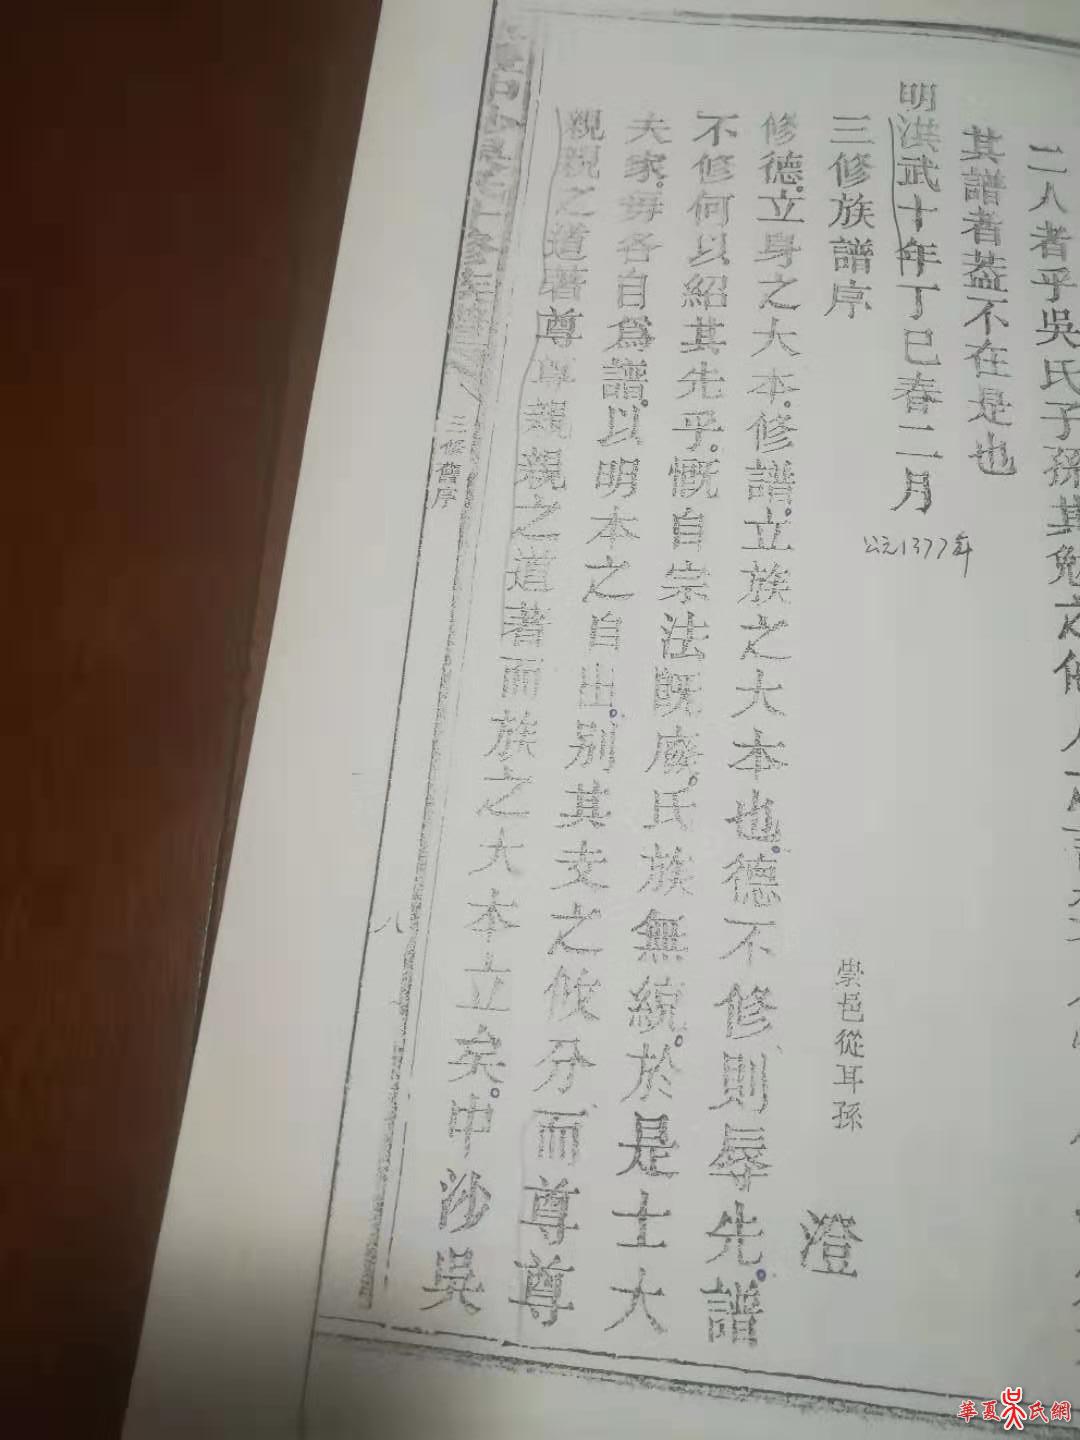 二人者乎吳氏子孫其勉之
其譜者葢不在是也
明洪武十年丁巳春二月
公元1377年
三修族譜序
崇邑從耳孫
澄
修德立身之大本修譜立族之大本也德不修則辱先譜
不修何以紹其先乎慨自宗法既廢氏族無統於是士大
夫家毋各自為譜以明本之自出別其支之攸分而尊尊
親親之道著尊尊親親之道著而族之大本立矣中沙吳
三修舊序
八
華夏吳氏網